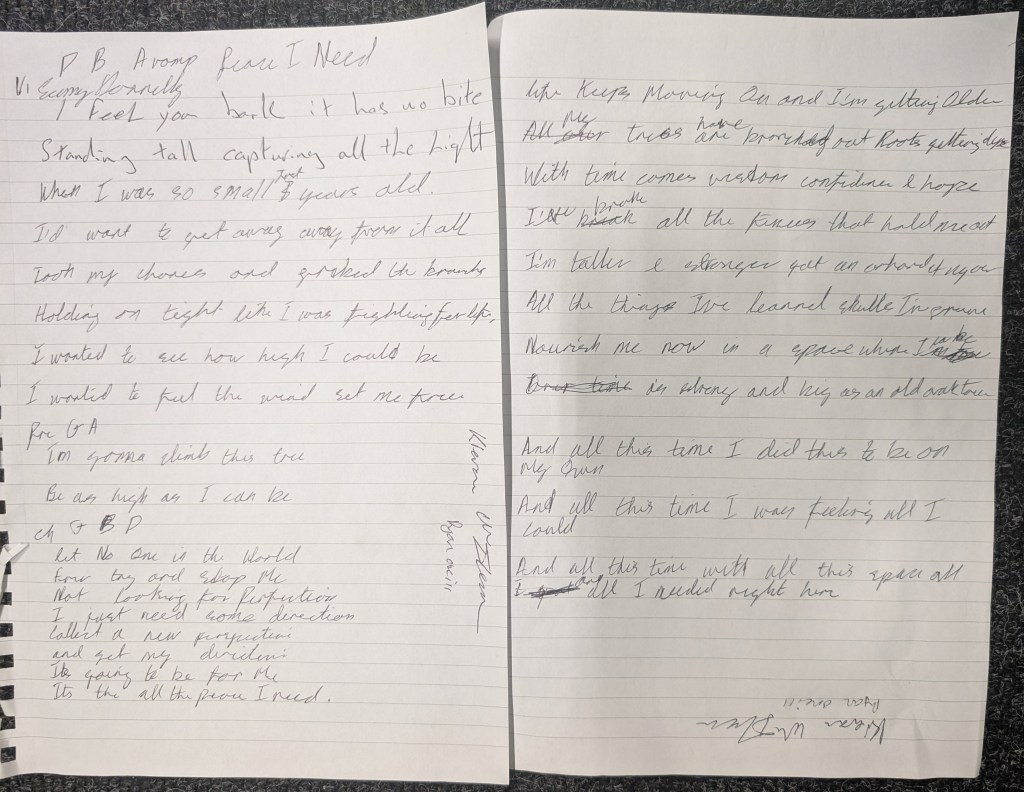 D B A romp Peace I Need
V1
I Feel you bark it has no bite
Standing tall capturing all the Light
When I was so small just 8 years old.
I'd want to get away away from it all
Took my chances and grabed the branchs
Holding on tight like I was fighting for life,
I wanted to see how high I could be
I wanted to feel the wind set me free
Pre G A
Im gonna climb this tree
Be as high as I can be
ch G B D
let No One in the World
Ever try and stop Me
Not Looking for Perfection
I just need some direction
Collect a new perspective
and get my
Its going to be for Me
Its the all the peace I need.
Ryan oneill
life Keeps Moving On and I'm getting Older
All My trees have branched out Roots getting deep
With time comes wisdom confidence & hope
I've broke all the fences that hold me out
I'm taller & stronger got an orchard
All the things I've learned skills I've grown
Nourish me now in a space where I can be
as strong and big as an old oak tree
And all this time I did this to be on
My Own
And all this time I was feeling all I
could
And all this time with all this space all
I and all I needed right here
Ryan oneill